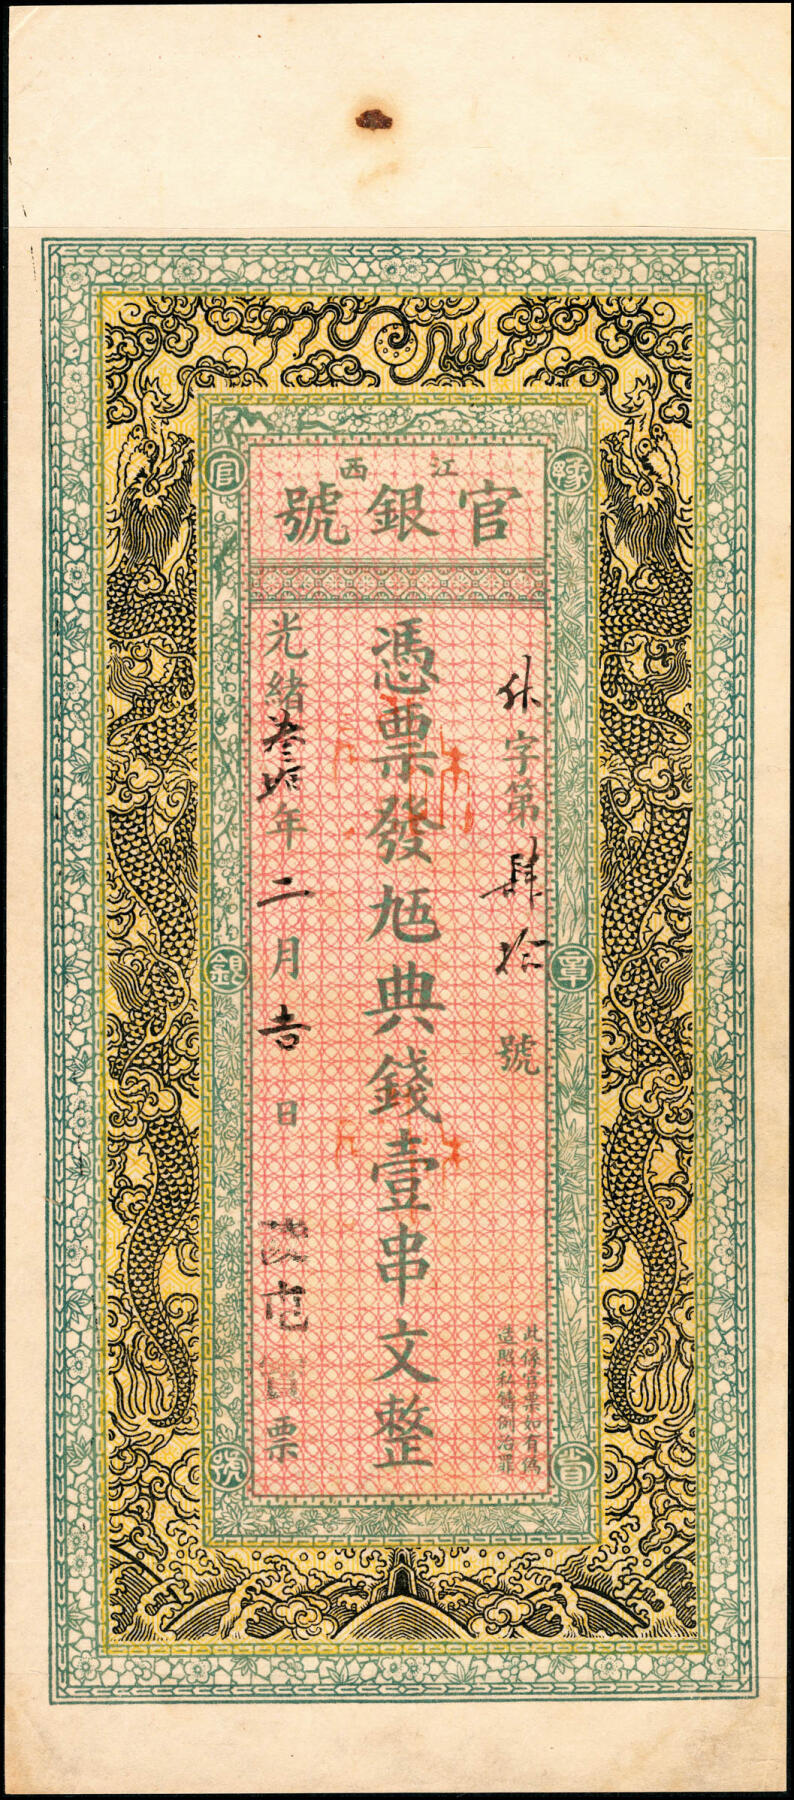 江西
官銀號
豫章省
字第肆拾號
此係官票如有偽
造照私鑄例治罪
憑票發九五典錢壹串文整
光緒叁拾年二月吉日
票
官銀號